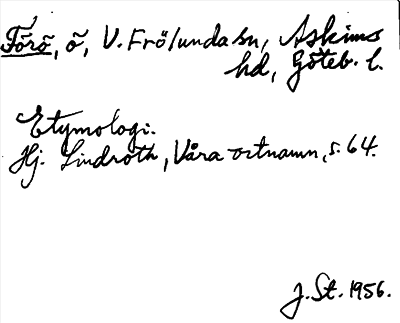 Förö, ö, V. Frölunda sn, Askims
hd, Göteb. l.
Etymologi:
Hj. Lindroth, Våra ortnamn, s. 64.
J. St. 1956.